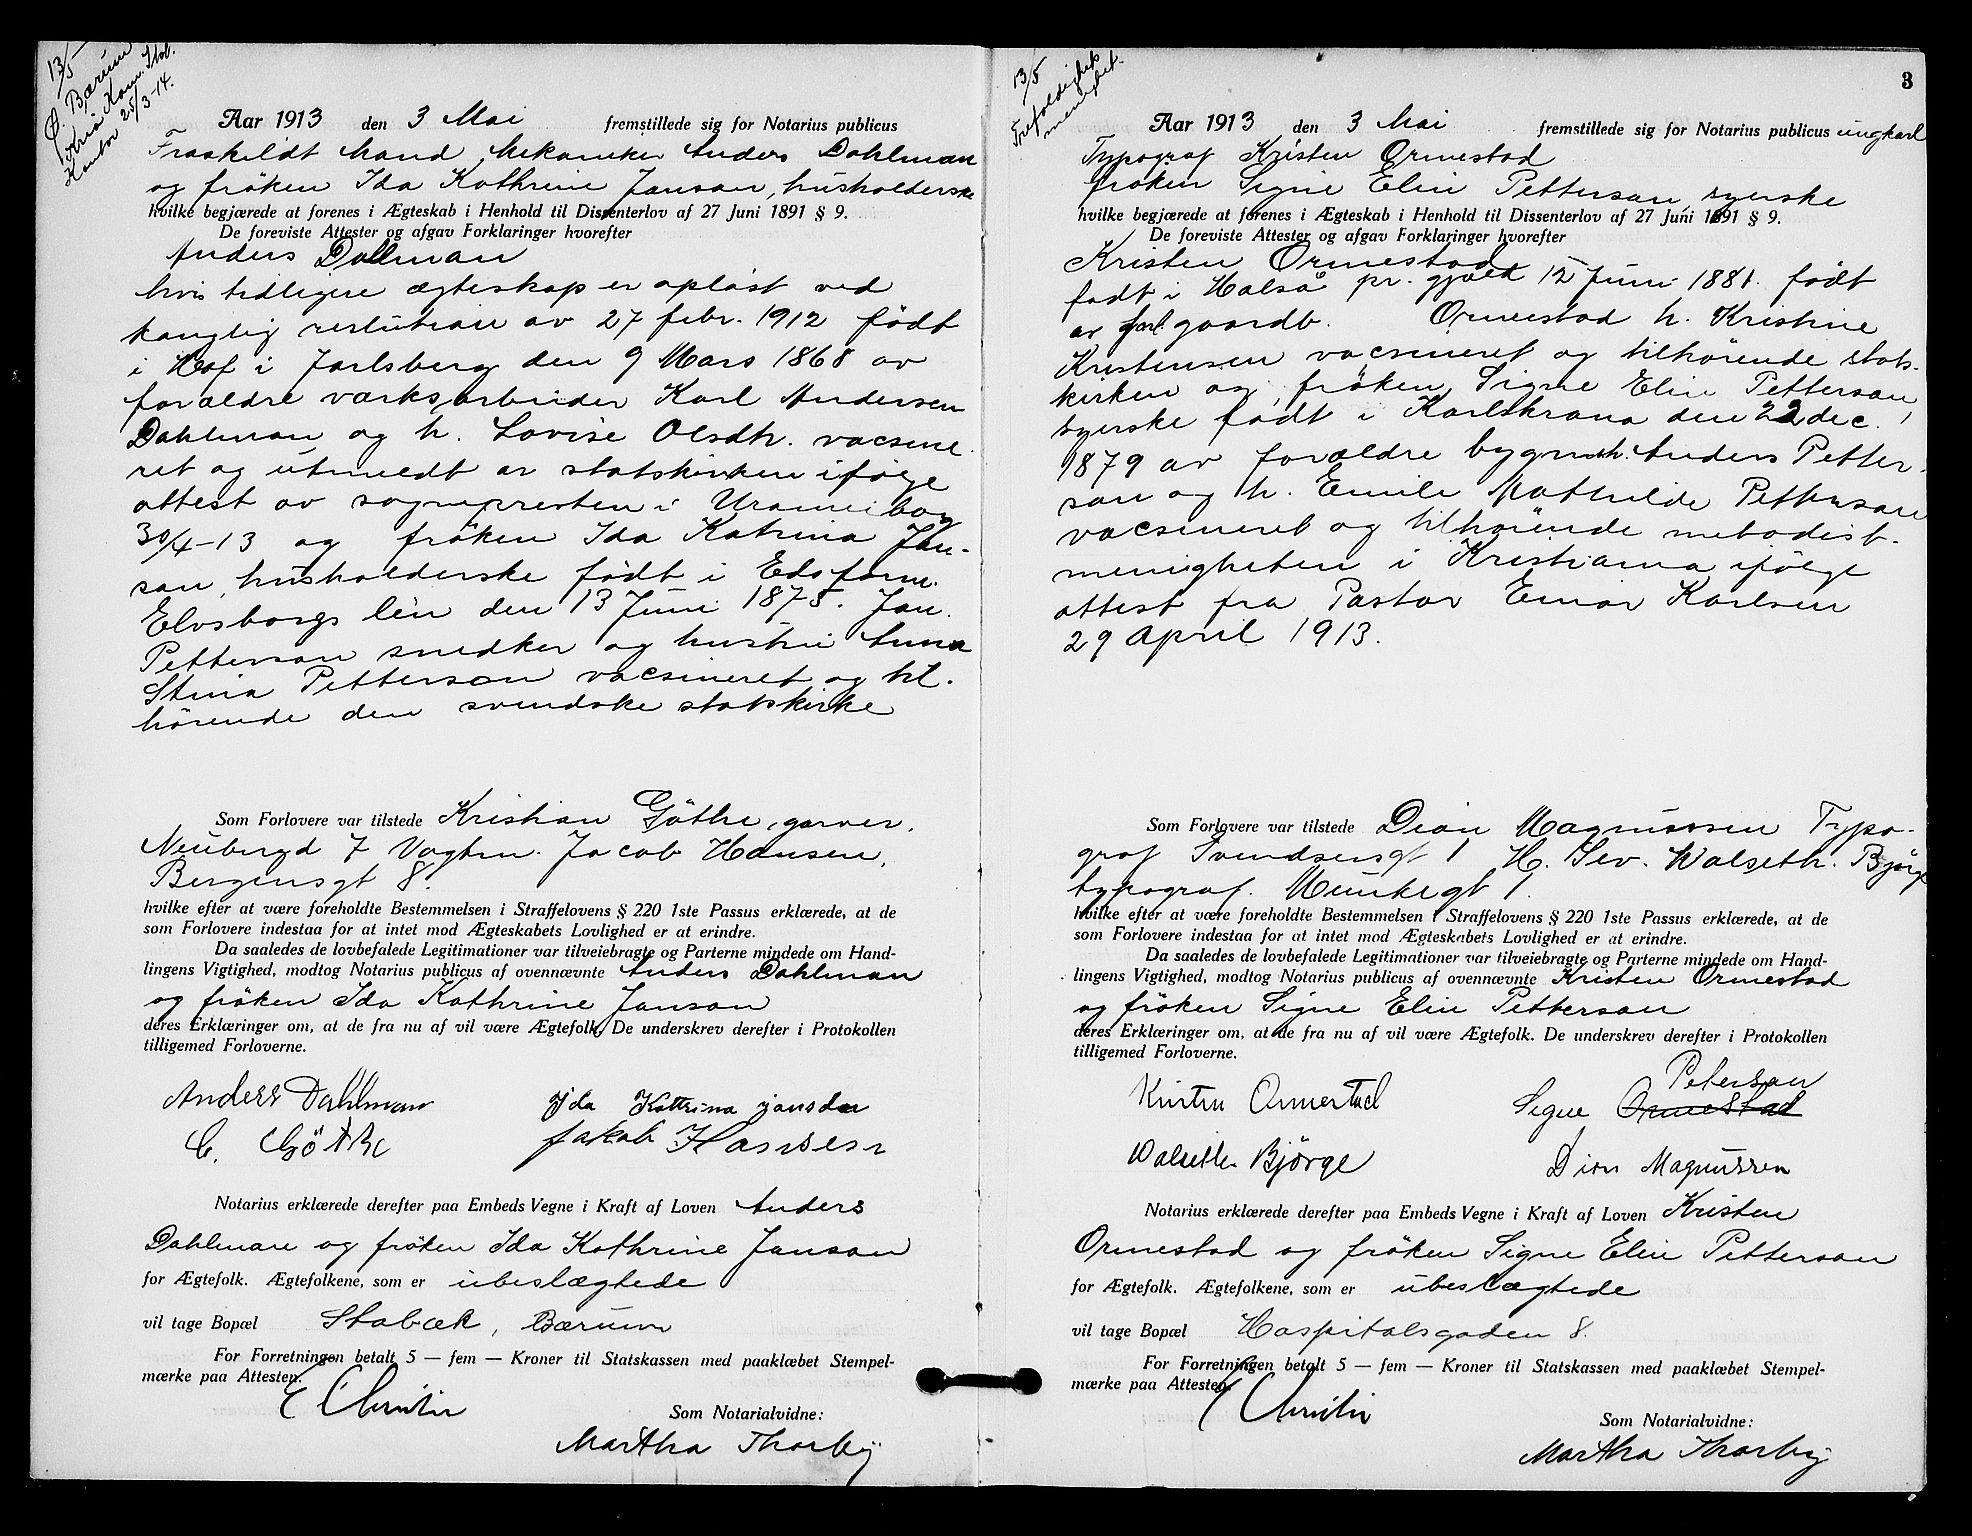 13/5
Ø. Bærum
Kria Kom. Skol.
Kontor 25/3-14.
Aar 1913 den 3 Mai fremstillede sig for Notarius publicus
Fraskildt Mand, Mekaniker Anders Dahlman
og fröken Ida Kathrine Janson, husholderske
hvilke begjærede at forenes i Ægteskab i Henhold til Dissenterlov af 27 Juni 1891 § 9.
De foreviste Attester og afgav Forklaringer hvorefter
Anders Dallman
hvis tidligere ægteskap er opløst ved
kongelig reslution av 27 febr. 1912 födt
i Hof i Jarlsberg den 9 Mars 1868 av
forældre værksarbeider Karl Andersen
Dahlman og h. Lovise Olsdtr. vacsine
ret og utmeldt av statskirken ifølge
attest av sognepresten i Uranienborg
30/4-13 og fröken Ida Katrina Jan-
son, husholderske födt i Edsforsm.
Elvsborgs lén den 13 Juni 1875. Jan.
Petterson snedker og hustru Anna
Stina Petterson vacsineret og til-
hörende den svendske statskirke
Som Forlovere var tilstede Kristian Göthe, garver,
Neubergd 7 Vogtm. Jacob Hansen,
Bergensgt 8.
hvilke efter at være foreholdte Bestemmelsen i Straffelovens § 220 1ste Passus erklærede, at de
som Forlovere indestaa for at intet mod Ægteskabets Lovlighed er at erindre.
Da saaledes de lovbefalede Legitimationer var tilveiebragte og Parterne mindede om Hand-
lingens Vigtighed, modtog Notarius publicus af ovennævnte Anders Dahlman
og fröken Ida Kathrine Janson
deres Erklæringer om, at de fra nu af vil være Ægtefolk. De underskrev derefter i Protokollen
tilligemed Forloverne.
Anders Dahlman Ida Kattrina Jansdn
C. Göthe Jakob Hansen
Notarius erklærede derefter paa Embeds Vegne i Kraft af Loven Anders
Dahlman og fröken Ida Kathrine Janson
for Ægtefolk. Ægtefolkene, som er ubeslægtede
vil tage Bopæl Stabæk, Bærum
For Forretningen betalt 5 — fem — Kroner til Statskassen med paaklæbet Stempel-
mærke paa Attesten.
Som Notarialvidne:
Martha Thorby
3
13/5
Trefoldigheds
menighet.
Aar 1913 den 3 Mai fremstillede sig for Notarius publicus ungkarl
Typograf Kristen Ormestad
fröken Signe Elin Petterson, syerske
hvilke begjærede at forenes i Ægteskab i Henhold til Dissenterlov af 27 Juni 1891 § 9.
De foreviste Attester og afgav Forklaringer hvorefter
Kristen Ormestad
født i Halså pr. gjæld 12 Juni 1881. födt
av forl. gaardb. Ormestad h. Kristine
Kristensen vacsineret og tilhörende stats-
kirken og fröken Signe Elin Petterson,
syerske födt i Karlskrona den 22 dec.
1879 av forældre bygmstr. Anders Petter-
son og h. Emile Mathilde Petterson
vacsineret og tilhörende metodist-
menigheten i Kristiania ifölge
attest fra Pastor Einar Karlsen
29 April 1913.
Som Forlovere var tilstede Dion Magnussen Typo-
graf Svendsensgt 1 H. Sev. Walseth. Björge
typograf. Munkegt 1.
hvilke efter at være foreholdte Bestemmelsen i Straffelovens § 220 1ste Passus erklærede, at de
som Forlovere indestaa for at intet mod Ægteskabets Lovlighed er at erindre.
Da saaledes de lovbefalede Legitimationer var tilveiebragte og Parterne mindede om Hand-
lingens Vigtighed, modtog Notarius publicus af ovennævnte Kristen Ormestad
og fröken Signe Elin Petterson
deres Erklæringer om, at de fra nu af vil være Ægtefolk. De underskrev derefter i Protokollen
tilligemed Forloverne.
Peterson
Kristen Ormestad Signe Ormestad
Walseth Björge Dion Magnussen
Notarius erklærede derefter paa Embeds Vegne i Kraft af Loven Kristen
Ormestad og fröken Signe Elin Petterson
for Ægtefolk. Ægtefolkene, som er ubeslægtede
vil tage Bopæl Hospitalsgaden 8.
For Forretningen betalt 5 — fem — Kroner til Statskassen med paaklæbet Stempel-
mærke paa Attesten.
Som Notarialvidne:
Martha Thorby